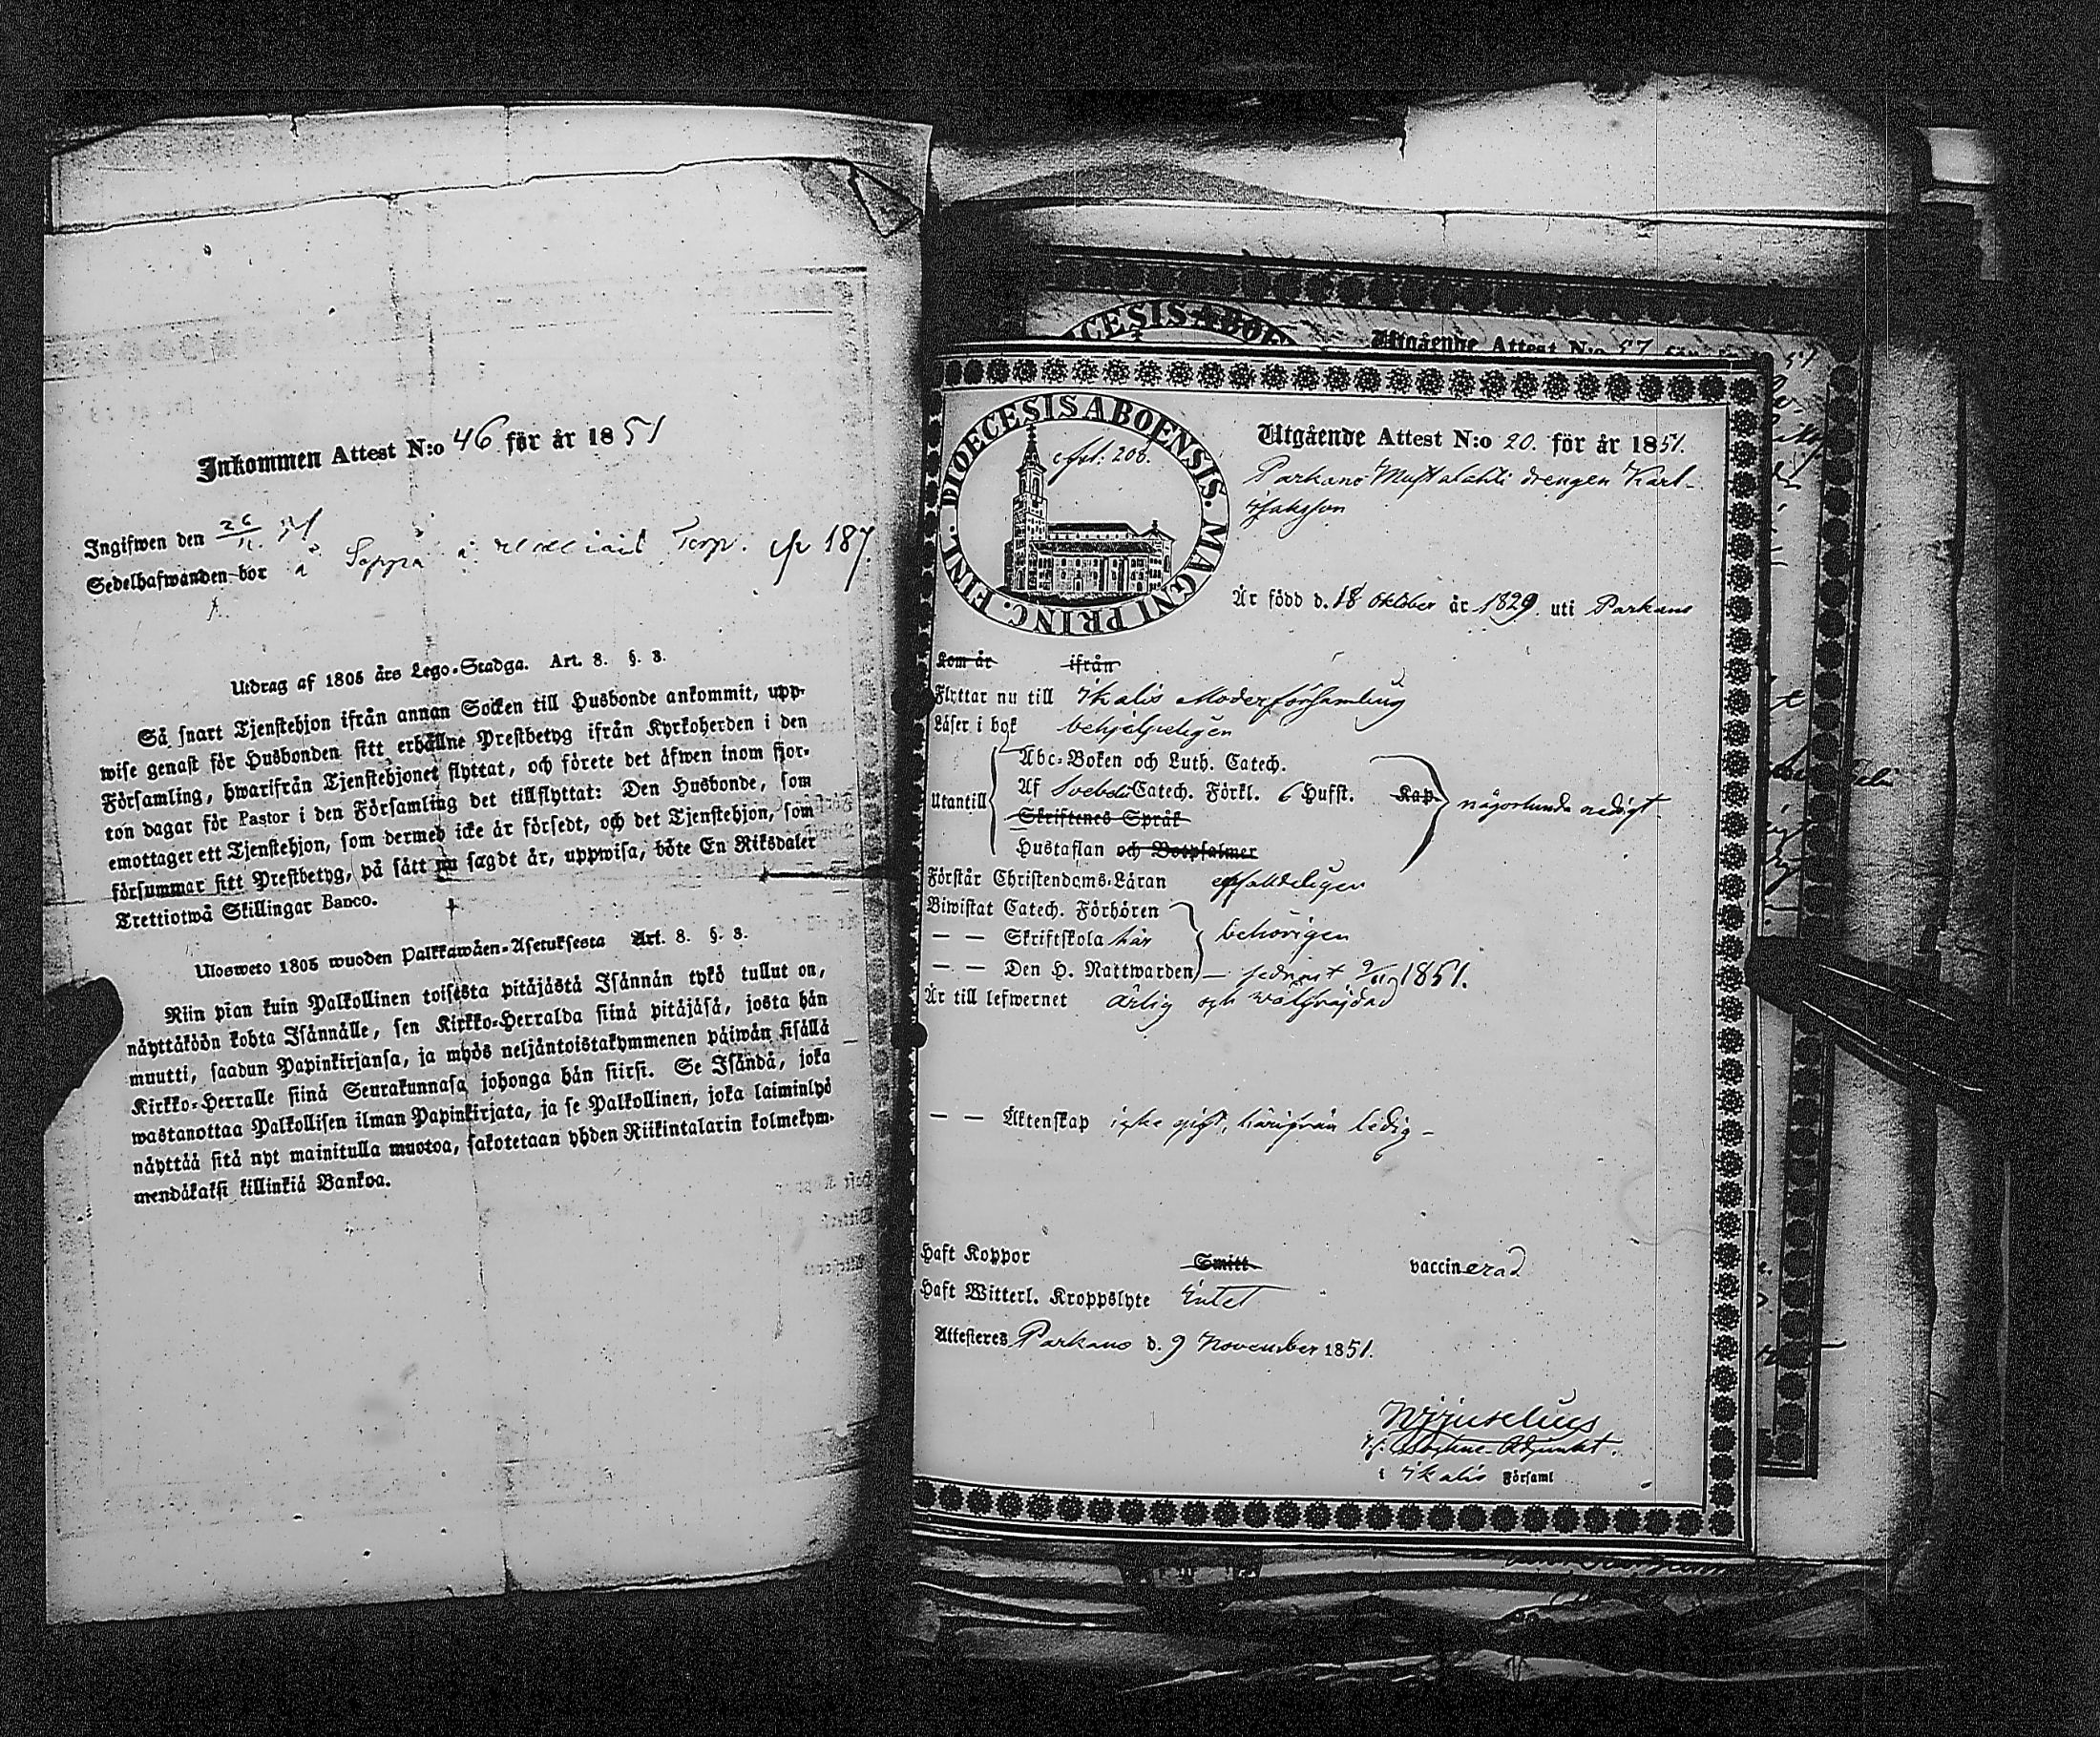 Inkommen Attest N:o 46 för år 1851
Ingifwen den 26/11 51
Sedelhafwanden bor å Seppä Torp. 187.
Utdrag af 1805 års Lego-Stadga. Art. 8. §. 3.
Så snart Tjenstehjon ifrån annan Socken till Husbonde ankommit, upp-
wise genast för Husbonden sitt erhållne Prestbetyg ifrån Kyrkoherden i den
Församling, hwarifrån Tjenstehjonet flyttat, och förete det äfwen inom fjor-
ton dagar för Pastor i den Församling det tillflyttat: Den Husbonde, som
emottager ett Tjenstehjon, som dermed icke är försedt, och det Tjenstehjon, som
försummar sitt Prestbetyg, på sätt nu sagdt är, uppwisa, böte En Riksdaler
Trettiotwå Skillingar Banco.
Ulosweto 1805 wuoden Palkkawäen-Asetuksesta Art. 8. §. 3.
Niin pian kuin Palkollinen toisesta pitäjästä Isännän tykö tullut on,
näyttäköön kohta Isännälle, sen Kirkko-Herralda siinä pitäjäsä, josta hän
muutti, saadun Papinkirjansa, ja myös neljäntoistakymmenen päiwän sisällä
Kirkko-Herralle siinä Seurakunnasa johonga hän siirsi. Se Isändä, joka
wastanottaa Palkollisen ilman Papinkirjata, ja se Palkollinen, joka laiminlyö
näyttää sitä nyt mainitulla muotoa, sakotetaan yhden Riikintalarin kolmekym-
mendäkaksi killinkiä Bankoa.
Utgående Attest N:o 57 för år 51
DIOECESIS ABOENSIS. MAGNI PRINC. FINL.
200.
Utgående Attest N:o 20. för år 1851.
Parkano Mustalahti drengen Karl
Isaksson
Är född d. 18 oktober år 1829. uti Parkano
Kom år ifrån
Flyttar nu till Ikalis Moderförsamling
Läser i bok behjelpeligen
Utantill Abc-Boken och Luth. Catech.
Af Svebeli Catech. Förkl. 6 Hufst. Kap. någorlunda redigt.
Skriftenes Språk
Hustaflan och Botpsalmer
Förstår Christendoms-Läran enfaldeligen
Biwistat Catech. Förhören
— — Skriftskola här behörigen
— — Den H. Nattwarden — sednast 9/11 1851.
Är till lefwernet ärlig och wälfrejdad
— — Äktenskap icke gift, härifrån ledig —
Haft Koppor Smitt vaccinerad
Haft Witterl. Kroppslyte Intet
Attesteras Parkano d. 9 November 1851.
i Ikalis Församl